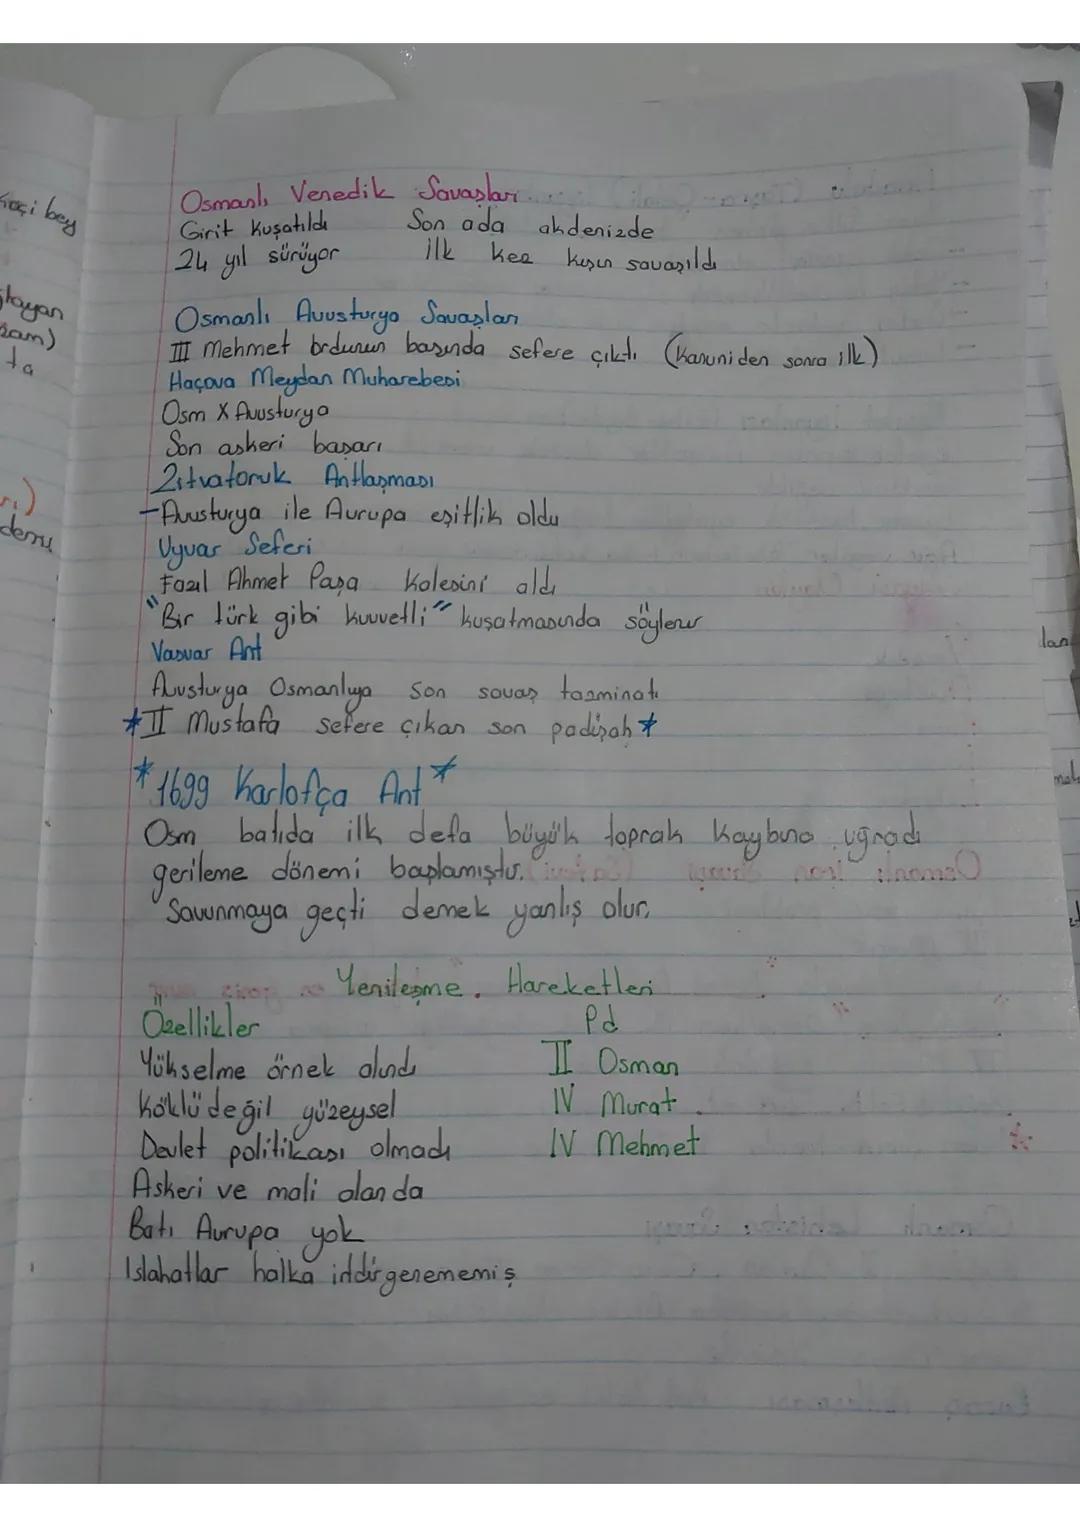 Koçi bey
Osmanlı Venedik Savaşları
Girit Kuşatıldı Son ada akdenizde
24 yıl sürüyor ilk kez kışın savaşıldı
Osmanlı Avusturya Savaşları
III Mehmet ordunun başında sefere çıktı (Kanuniden sonra ilk)
Haçova Meydan Muharebesi
Osm X Avusturya
Son askeri başarı
Zitvatoruk Antlaşması
-Avusturya ile Avrupa eşitlik oldu
Uyvar Seferi
Fazıl Ahmet Paşa Kalesini aldı
"Bir türk gibi kuvvetli" kuşatmasında söylenir
Vasvar Ant
Avusturya Osmanlıya son savaş tazminatı
*II Mustafa sefere çıkan son padişah*
*1699 Karlofça Ant*
Osm batıda ilk defa büyük toprak kaybına uğradı
gerileme dönemi başlamıştır.
Savunmaya geçti demek yanlış olur.
Yenileşme Hareketleri
Özellikler Pd
Yükselme örnek alındı II Osman
Köklü değil yüzeysel IV Murat
Devlet politikası olmadı IV Mehmet
Askeri ve mali alanda
Batı Avrupa yok
Islahatlar halka iddirgenememiş